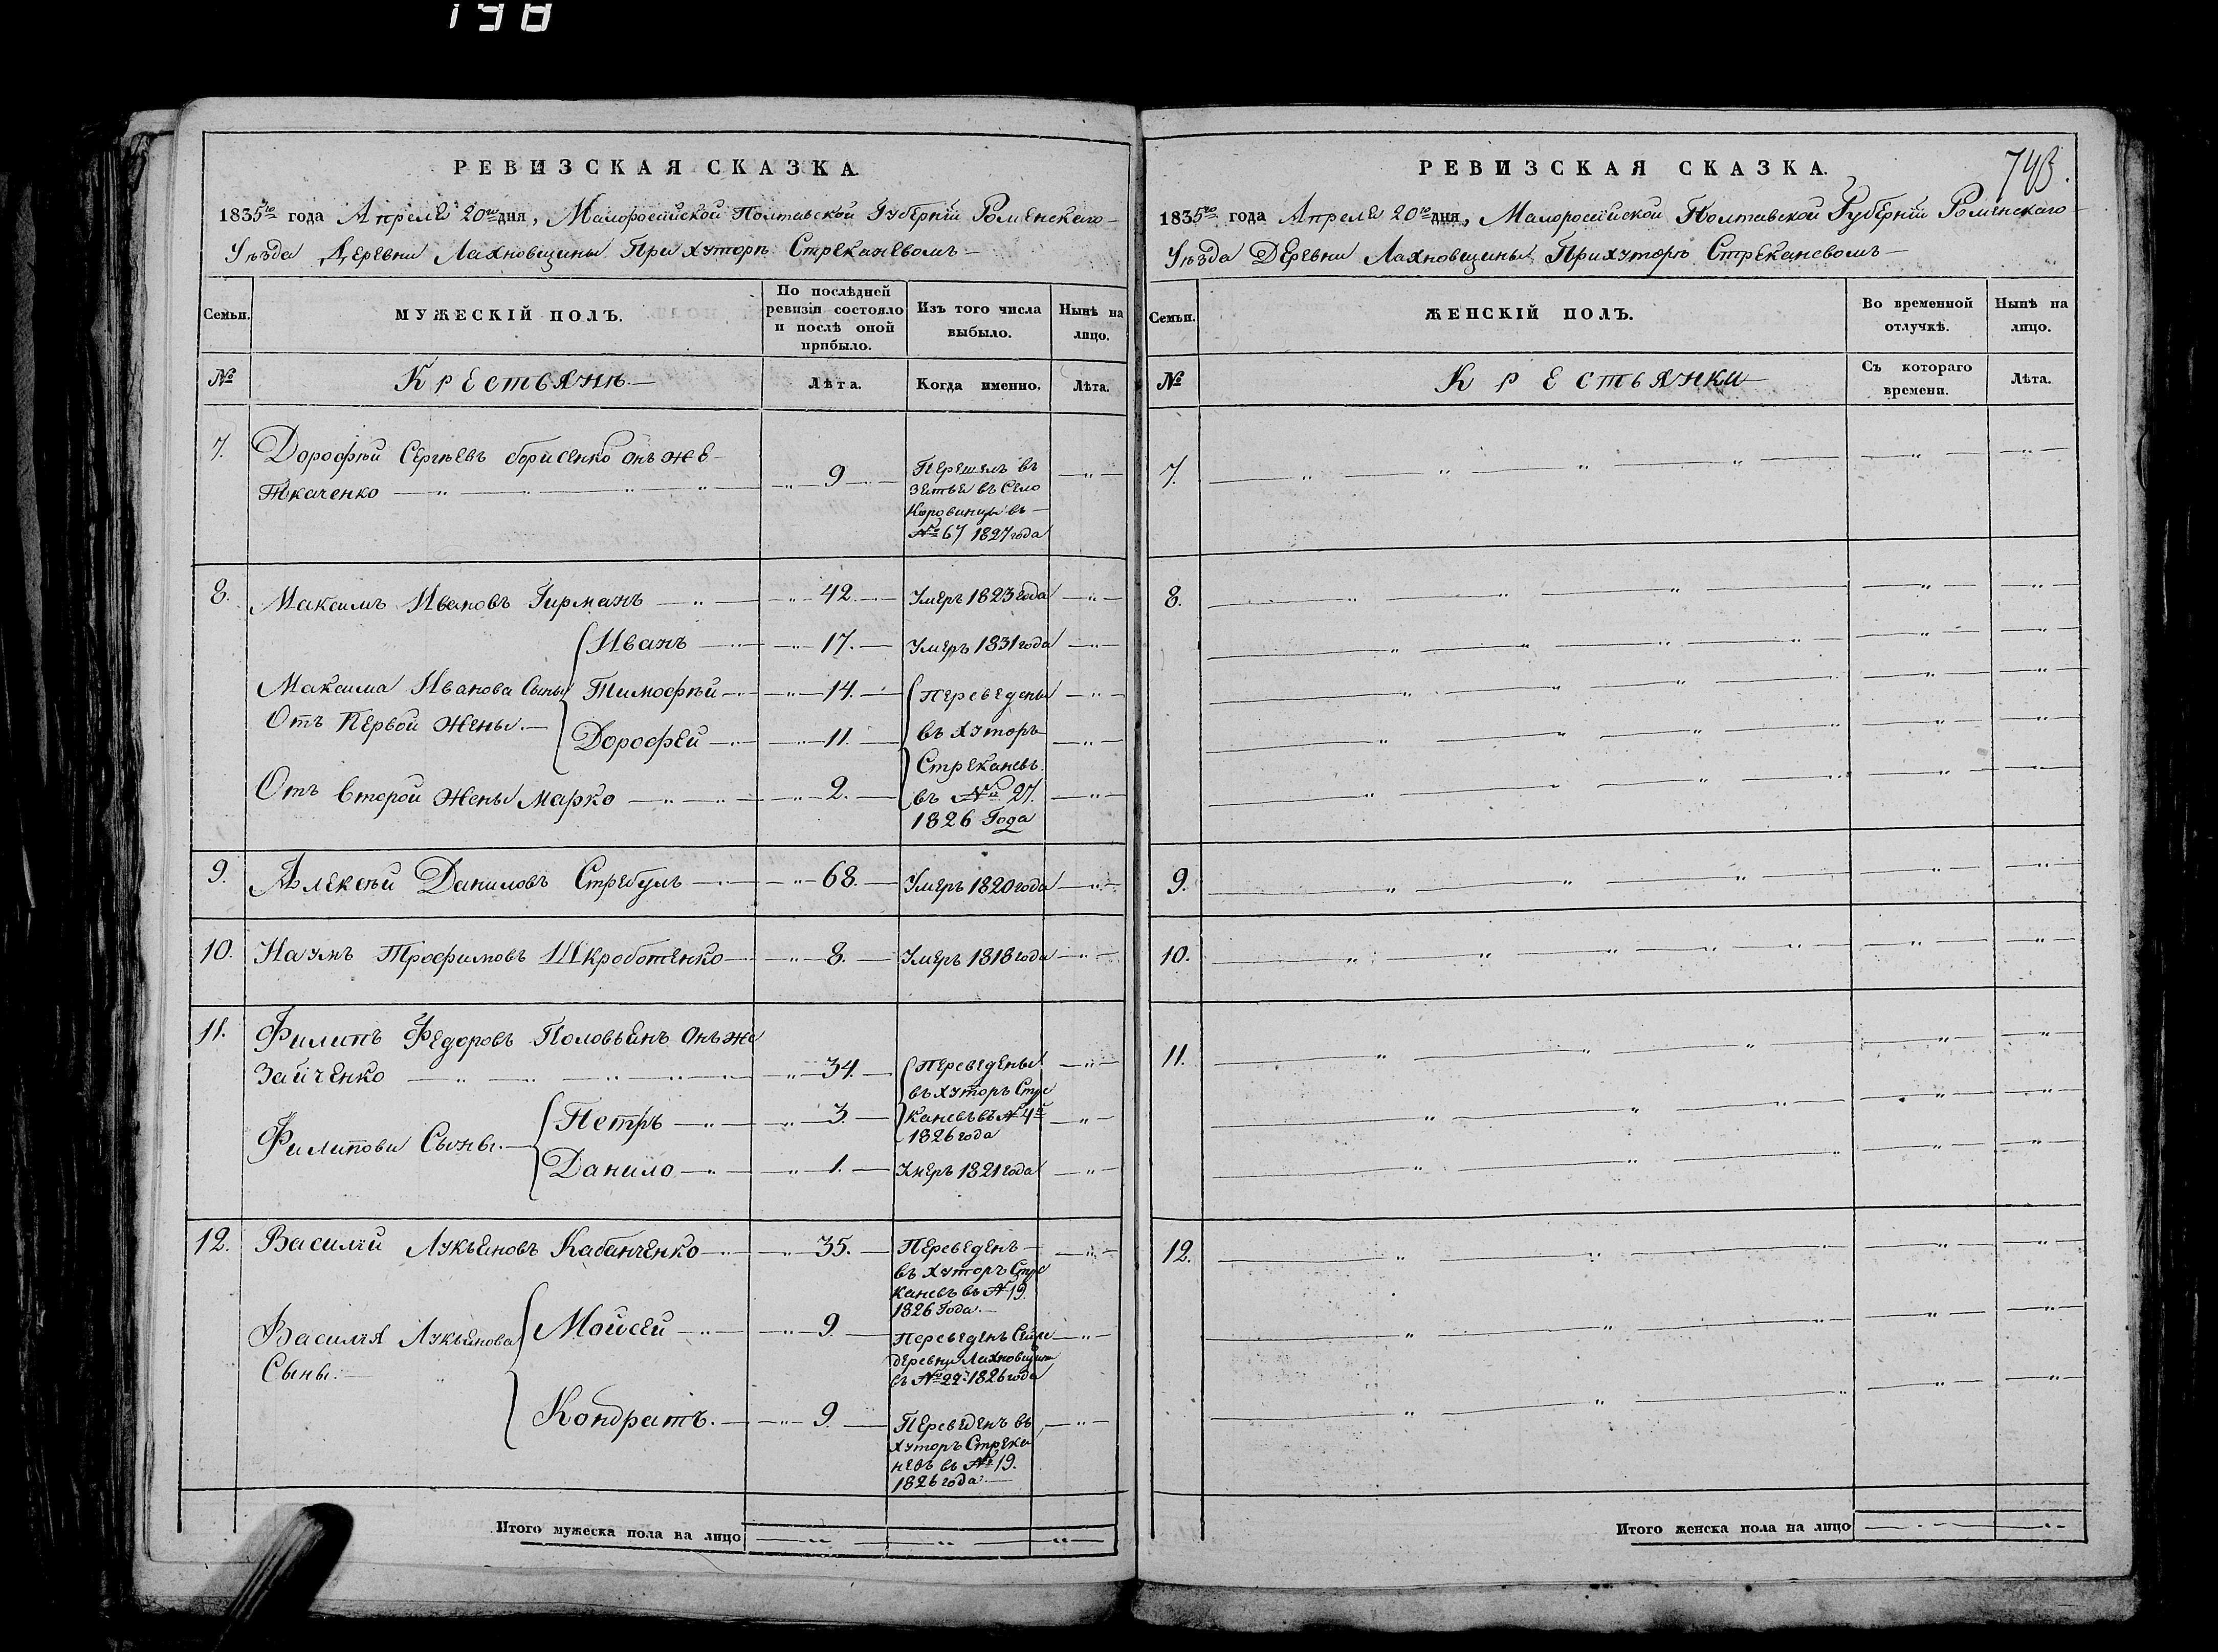 198
РЕВИЗСКАЯ СКАЗКА.
1835го года Апреля 20го дня, Малоросийской Полтавской Губерніи Роменскаго
Уѣзда Деревни Лахновщины При хуторѣ Стреканевомъ
Семьи.
МУЖЕСКІЙ ПОЛЪ.
По послѣдней ревизіи состояло и послѣ оной прибыло.
Изъ того числа выбыло.
Нынѣ на лицо.
№
Крестьянѣ.
Лѣта.
Когда именно.
Лѣта.
7. Дорофѣй Сергѣевъ Борисенко онъ же
Ткаченко 9 Перешелъ въ
зятья въ Село
Коровинцы въ
№ 67 1827 года
8. Максимъ Ивановъ Гирманъ 42. Умеръ 1823 года
Иванъ 17. Умеръ 1831 года
Максима Иванова Сыны Тимофѣй 14. Переведены
Отъ Первой Жены. Дорофей 11. въ хуторъ
Стреканевъ
Отъ второй Жены Марко 2. въ № 27.
1826 Года
9. Алексѣй Даниловъ Стребулъ 68. Умеръ 1820 года
10. Наумъ Трофимовъ Шкроботенко 8. Умеръ 1818 года
11. Филипъ Федоровъ Половьянъ онъ же
Зайченко 34. Переведены
въ хуторъ Стре
Петръ 3. каневъ въ № 4й
1826 года
Филипови Сыны.
Данило 1. Умеръ 1821 года
12. Василій Лукьяновъ Кабанченко 35. Переведенъ
въ хуторъ Стре
каневъ въ № 19.
1826 Года.
Василія Лукьянова Мойсей 9. Переведенъ Сей же
Сыны. деревни Лахновщины
въ № 22. 1826 года
Кондратъ. 9. Переведенъ въ
хуторъ Стрека
невъ въ № 19.
1826 года.
Итого мужеска пола на лицо
743.
РЕВИЗСКАЯ СКАЗКА.
1835го года Апреля 20го дня, Малоросийской Полтавской Губерніи Роменскаго
Уѣзда Деревни Лахновщины При хуторѣ Стреканевомъ
Семьи.
ЖЕНСКІЙ ПОЛЪ.
Во временной отлучкѣ.
Нынѣ на лицо.
№
Крестьянки
Съ котораго времени.
Лѣта.
7.
8.
9.
10.
11.
12.
Итого женска пола на лицо